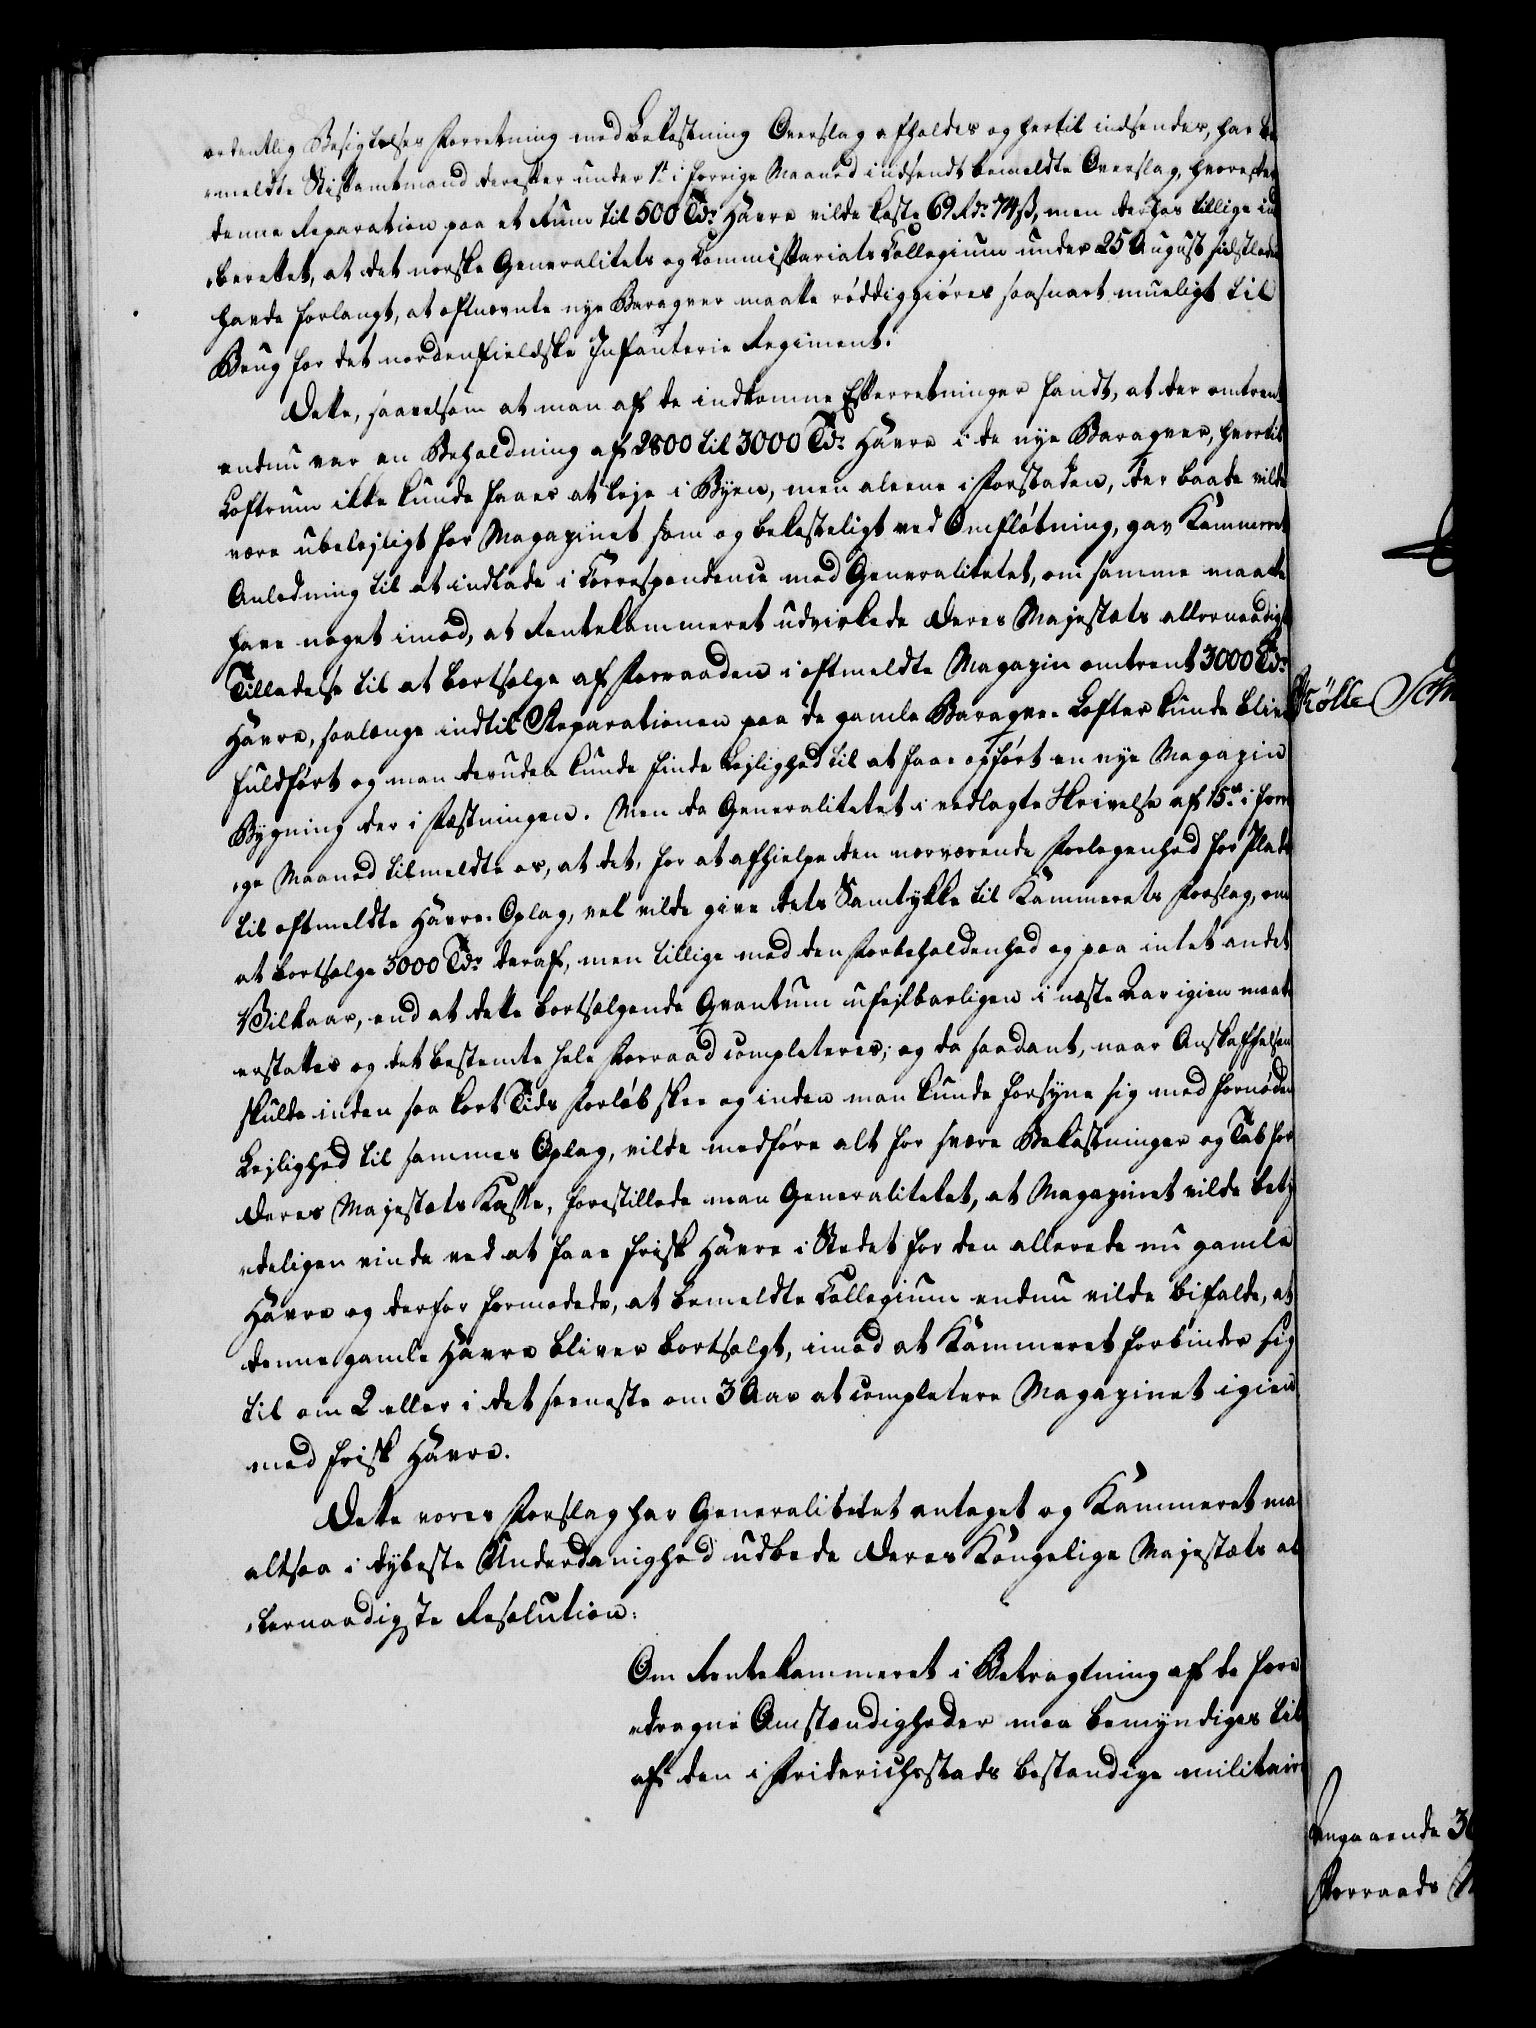 ordentlig Besigtelses Forretning med Bekostning Overslag afholdes og hertil indsendes, har be
„meldte Stiftamtmand derefter under 1te i forrige Maaned indsendt bemeldte Overslag, hvorefter
denne Reparation paa et Rum til 500 Tdr Havre vilde koste 69 Rdr 74 ß, men derhos tillige ind
„berettet, at det norske Generalitets og Commissariats Collegium under 25 August sidstleden
havde forlangt, at oftnevnte nye Baraqver maatte røddiggiøres saasnart mueligt til
Brug for det nordenfieldske Infanterie Regiment.
Dette, saavelsom at man af de indkomne Efterretninger fandt, at der omtrent
endnu var en Beholdning af 2800 til 3000 Tdr Havre i de nye Baraqver, hvortil
Loftrum ikke kunde faaes at leje i Byen, men alene i Forstaden, der baade vilde
være ubelejligt for Magazinet som og bekosteligt ved Omfløtning, gav Kammeret
Anledning til at indlade i Correspondence med Generalitetet, om samme maatte
have noget imod, at Rentekammeret udvirkede Deres Majestæts allernaadigst
Tilladelse til at bortsælge af Forraaden i oftmeldte Magazin omtrent 3000 Tdr
Havre, saalænge indtil Reparationen paa de gamle Baraqve-Lofter kunde blive
fuldført og man desuden kunde finde Lejlighed til at faae opført en nye Magazin
Bygning der i Fæstningen. Men da Generalitetet i vedlagte Skrivelse af 15de i forri
„ge Maaned tilmeldte os, at det, for at afhielpe den nærværende Forlegenhed for Plads
til oftmeldte Havre-Oplag, vel vilde give dets Samtykke til Kammerets Forslag, om
at bortsælge 3000 Tdr deraf, men tillige med den Forbeholdenhed og paa intet andet
Vilkaar, end at dette bortsælgende Qvantum ufejlbarligen i næste Aar igien maatte
erstattes og det bestemte hele Forraad completeres; og da saadant, naar Anskaffelsen
skulde inden saa kort Tids Forløb skee og inden man kunde forsyne sig med fornøden
Lejlighed til sammes Oplag, vilde medføre alt for svære Bekostninger og Tab for
Deres Majestæts Kasse, forestillede man Generalitetet, at Magazinet vilde bety
„deligen vinde ved at faae frisk Havre i Stedet for den allerede nu gamle
Havre og derfor formodede, at bemeldte Collegium endnu vilde bifalde, at
denne gamle Havre bliver bortsolgt, imod at Kammeret forbinder sig
til om 2 eller i det seeneste om 3 Aar at completere Magazinet igien
med frisk Havre.
Dette vores Forslag har Generalitetet antaget og Kammeret maa
altsaa i dybeste Underdanighed udbede Deres Kongelige Majestæts al
„lernaadigste Resolution:
Om Rentekammeret i Betragtning af de fore
„dragne Omstændigheder maa bemyndiges til
af den i Friderichsstads bestandige militaire
Kølle Sch
angaaende 30
Forraads M